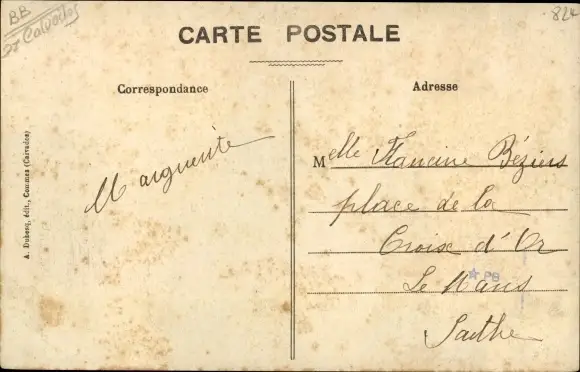 BB
Calvados
824
CARTE POSTALE
Correspondance
Adresse
Marguerite
Melle Francine Béziers
place de la
Croix d'Or
Le Mans
Sarthe
PB
A. Dubosq, édit., Commes (Calvados)